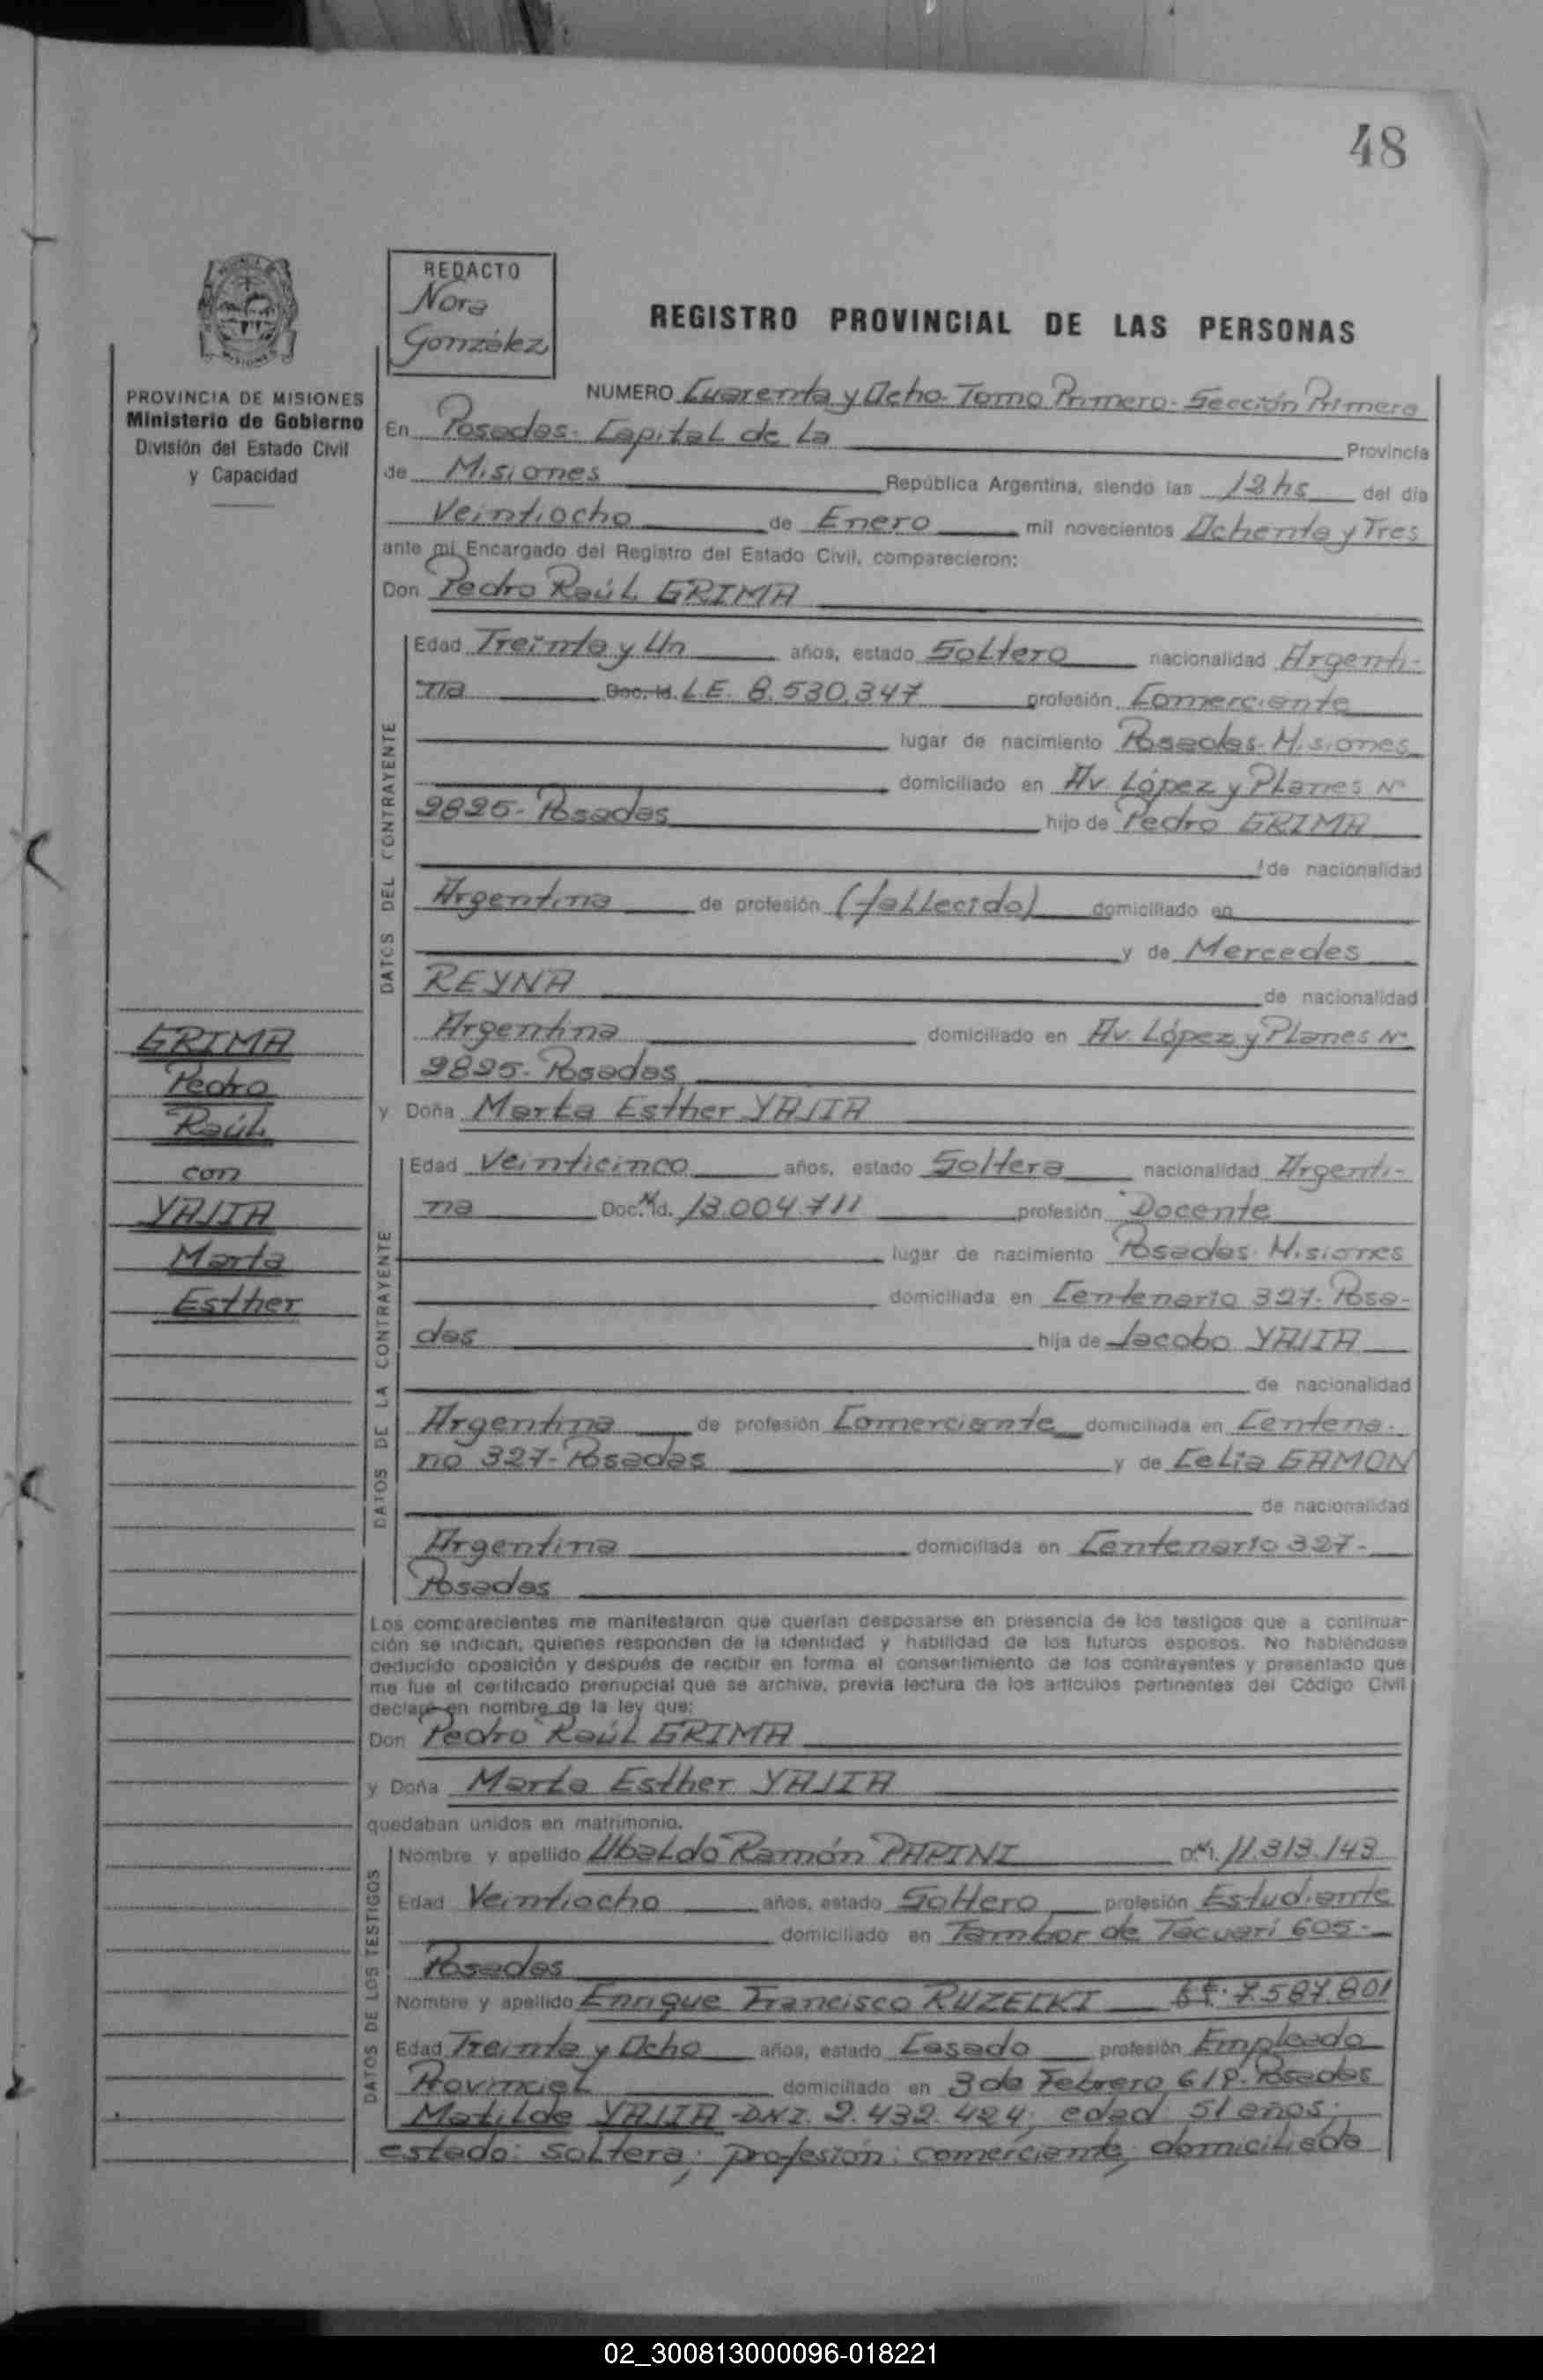 48
REDACTO
Nora
González
REGISTRO PROVINCIAL DE LAS PERSONAS
PROVINCIA DE MISIONES
Ministerio de Gobierno
División del Estado Civil
y Capacidad
NUMERO Cuarenta y Ocho-Tomo Primero-Sección Primera
En Posadas-Capital de La Provincia
de Misiones República Argentina, siendo las 12 hs del día
Veintiocho de Enero mil novecientos Ochenta y Tres
ante mí Encargado del Registro del Estado Civil, comparecieron:
Don Pedro Raúl GRIMA
DATOS DEL CONTRAYENTE
Edad Treinta y Un años, estado Soltero nacionalidad Argenti-
na Doc. Id. L.E. 8.530.347 profesión Comerciante
lugar de nacimiento Posadas-Misiones
domiciliado en Av. López y Planes Nº
2825-Posadas hijo de Pedro GRIMA
de nacionalidad
Argentina de profesión (fallecido) domiciliado en
y de Mercedes
REYNA de nacionalidad
Argentina domiciliado en Av. López y Planes Nº
2825-Posadas
GRIMA
Pedro
Raúl
con
YAJIA
Marta
Esther
y Doña Marta Esther YAJIA
DATOS DE LA CONTRAYENTE
Edad Veinticinco años, estado Soltera nacionalidad Argenti-
na Doc. Nd. 13.004.711 profesión Docente
lugar de nacimiento Posadas-Misiones
domiciliada en Centenario 327-Posa-
das hija de Jacobo YAJIA
de nacionalidad
Argentina de profesión Comerciante domiciliada en Centena-
rio 327-Posadas y de Celia GAMON
de nacionalidad
Argentina domiciliada en Centenario 327-
Posadas
Los comparecientes me manifestaron que querían desposarse en presencia de los testigos que a continua-
ción se indican, quienes responden de la identidad y habilidad de los futuros esposos. No habiéndose
deducido oposición y después de recibir en forma el consentimiento de los contrayentes y presentado que
me fue el certificado prenupcial que se archiva, previa lectura de los artículos pertinentes del Código Civil
declaré en nombre de la ley que:
Don Pedro Raúl GRIMA
y Doña Marta Esther YAJIA
quedaban unidos en matrimonio.
DATOS DE LOS TESTIGOS
Nombre y apellido Ubaldo Ramón PAPINI D.N.I. 11.313.143
Edad Veintiocho años, estado Soltero profesión Estudiante
domiciliado en Tambor de Tacuarí 605-
Posadas
Nombre y apellido Enrique Francisco RUZECKI L.E. 7.587.801
Edad Treinta y Ocho años, estado Casado profesión Empleado
Provincial domiciliado en 3 de Febrero 619-Posadas
Matilde YAJIA-DNI. 2.432.424; edad 51 años;
estado: soltera; profesión: comerciante, domiciliada
02_300813000096-018221